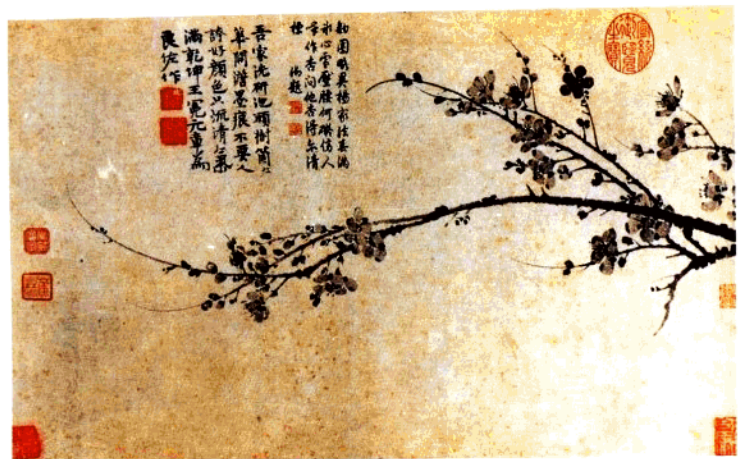 鈎圈略異楊家法春滿
冰心雪壓腰何礙傍人
呼作杏問他杏得尔清
標 御題
吾家洗研池頭樹箇〻
華開澹墨痕不要人
誇好顏色只流清氣
滿乾坤王冕元章為
良佐作